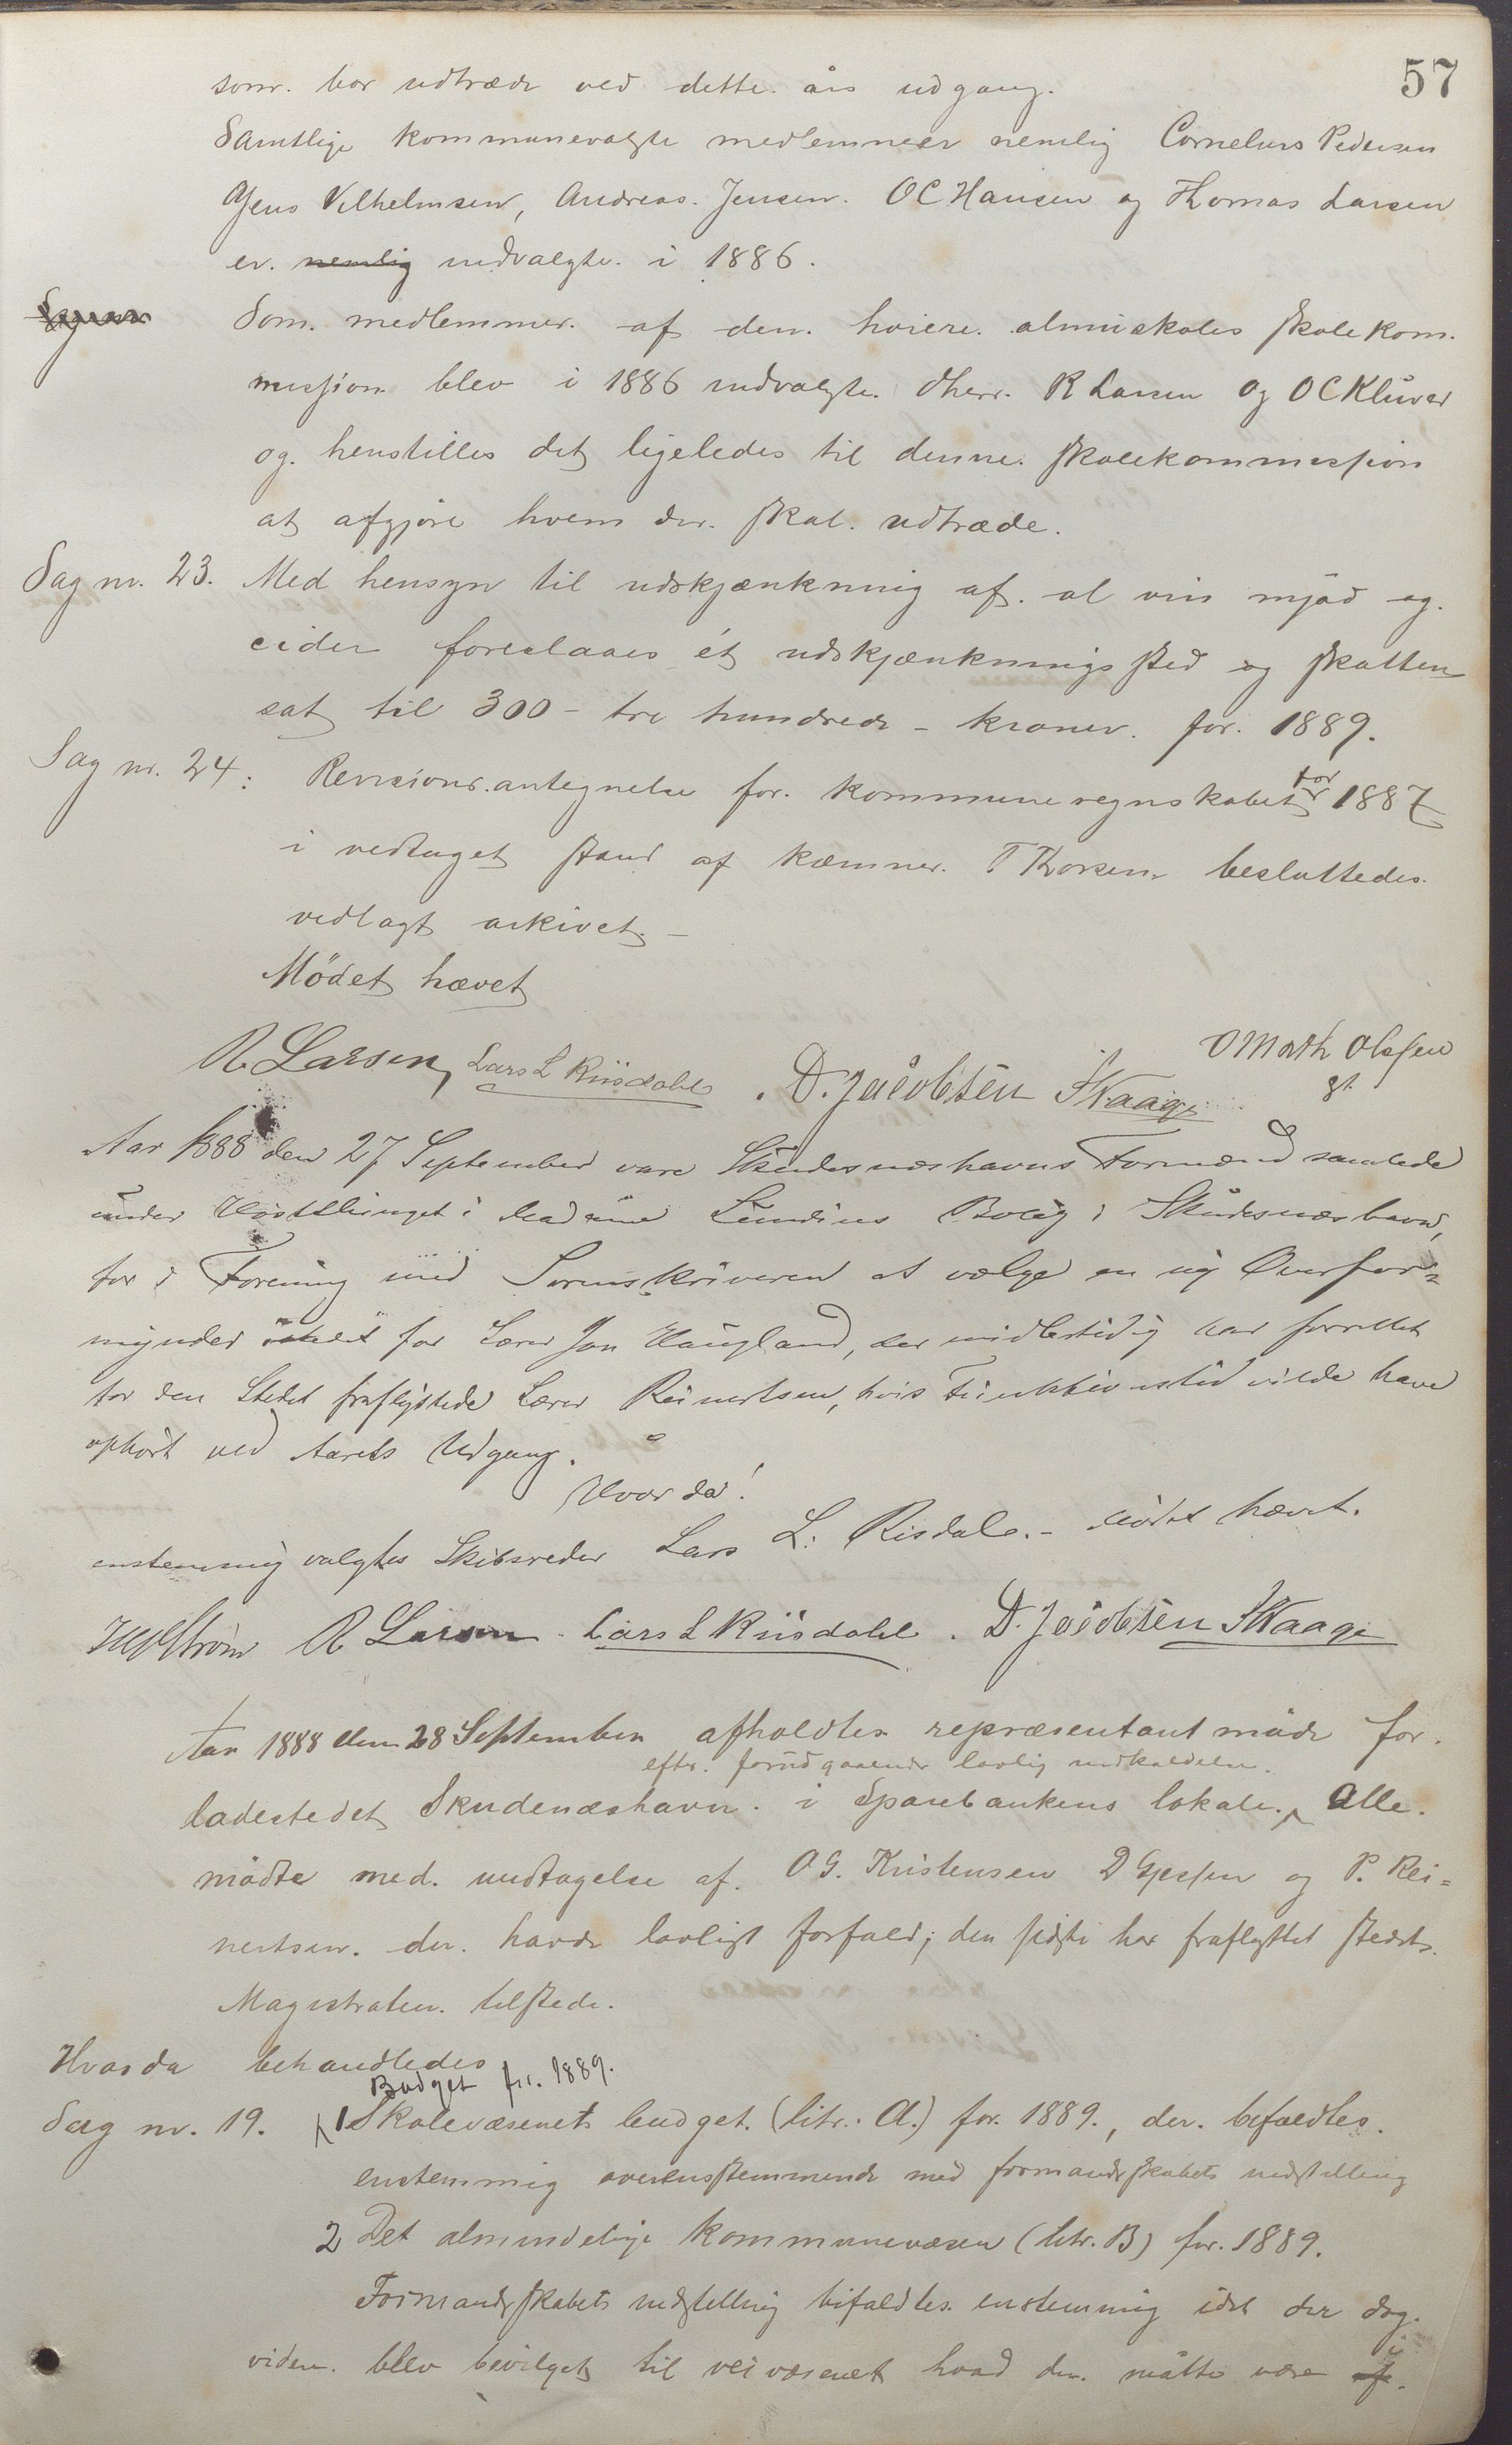 57
som. bör udtræde ved dette. års udgang.
Samtlige kommunevalgte medlemmer nemlig Cornelius Pedersen
Jens Vilhelmsen, Andreas. Jensen. O C Hansen og Thomas Larsen
er. nemlig indvalgte. i 1886.
Som. medlemmer. af den. høiere. almueskoles skolekom.
mission blev i 1886 indvalgte. dherr. R Larsen og O C Kluver
og. henstilles det ligeledes til denne. skolekommission
at afgjøre hvem der. skal. udtræde.
Sag nr. 23. Med hensyn til udskjænkning af. øl vin mjød og.
cider foreslaaes ét udskjænkningssted og skatten
sat til 300 - tre hundrede - kroner. for. 1889.
Sag nr. 24: Revisions.antegnelse for. kommuneregnskabet for 1887
i vedtaget stand af kæmner. T Thorsen. besluttedes.
vedlagt arkivet. -
Mödet hævet
R Larsen, Lars L Riisdahl . D. Jacobsen S Waage O Math Olsen
Aar 1888 den 27 September vare Skudesnæshavns Formænd samlede
under Høstthinget i Madame Lundins Bolig i Skudesnæshavn,
for i Forening med Sorenskriveren at vælge en ny Overfor=
mynder istedet for Lærer Jon Haugland, der midlertidig har forrettet
for den Stedet fraflyttede Lærer Reinertsen, hvis Funktionstid vilde have
ophört ved Aarets Udgang.
Hvorda!
enstemmig valgtes Skibsreder Lars L. Risdal. - Mödet hævet.
R Larsen. Lars L Riisdahl. D. Jacobsen S Waage
Aar 1888 den 28 September afholdtes repræsentantmöde for.
efter. forudgaaende lovlig indkaldelse.
ladestedet Skudenæshavn. i Sparebankens lokale. Alle.
mödte med. undtagelse af. O G. Kristensen D Gjessen og P. Rei=
nertsen. der. havde lovligt forfald; den sidste har fraflyttet stedet.
Magistraten. tilstede.
Hvorda behandledes
Budget for. 1889.
Sag nr. 19. 1 Skolevæsenets budget. (litr. A.) for. 1889., der. bifaldtes.
enstemmig overensstemmende med formandskabets indstilling
2 Det almindelige kommunevæsen (litr. B) for. 1889.
Formandskabets indstilling bifaldtes. enstemmig idet der dog.
videre. blev bevilget til veivæsenet hvad der. måtte være i af.